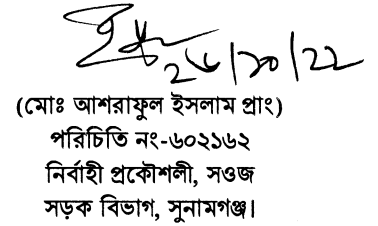 ২৬/১০/২২
(মোঃ আশরাফুল ইসলাম প্রাং)
পরিচিতি নং-৬০২১৬২
নির্বাহী প্রকৌশলী, সওজ
সড়ক বিভাগ, সুনামগঞ্জ।